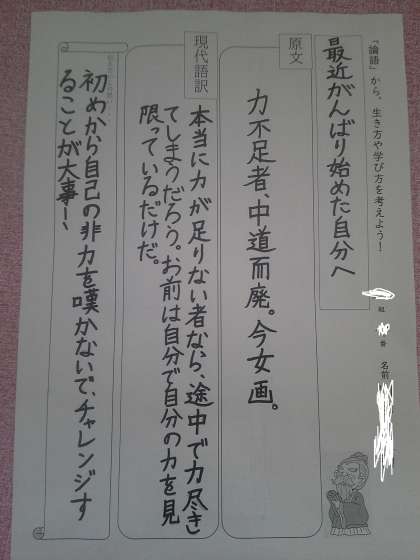 「論語」から、生き方や学び方を考えよう！
組
番
名前
最近がんばり始めた自分へ
原文
力不足者、中道而廃。今女画。
現代語訳
本当に力が足りない者なら、途中で力尽き
てしまうだろう。お前は自分で自分の力を見
限っているだけだ。
初めから自己の非力を嘆かないで、チャレンジす
ることが大事ー、